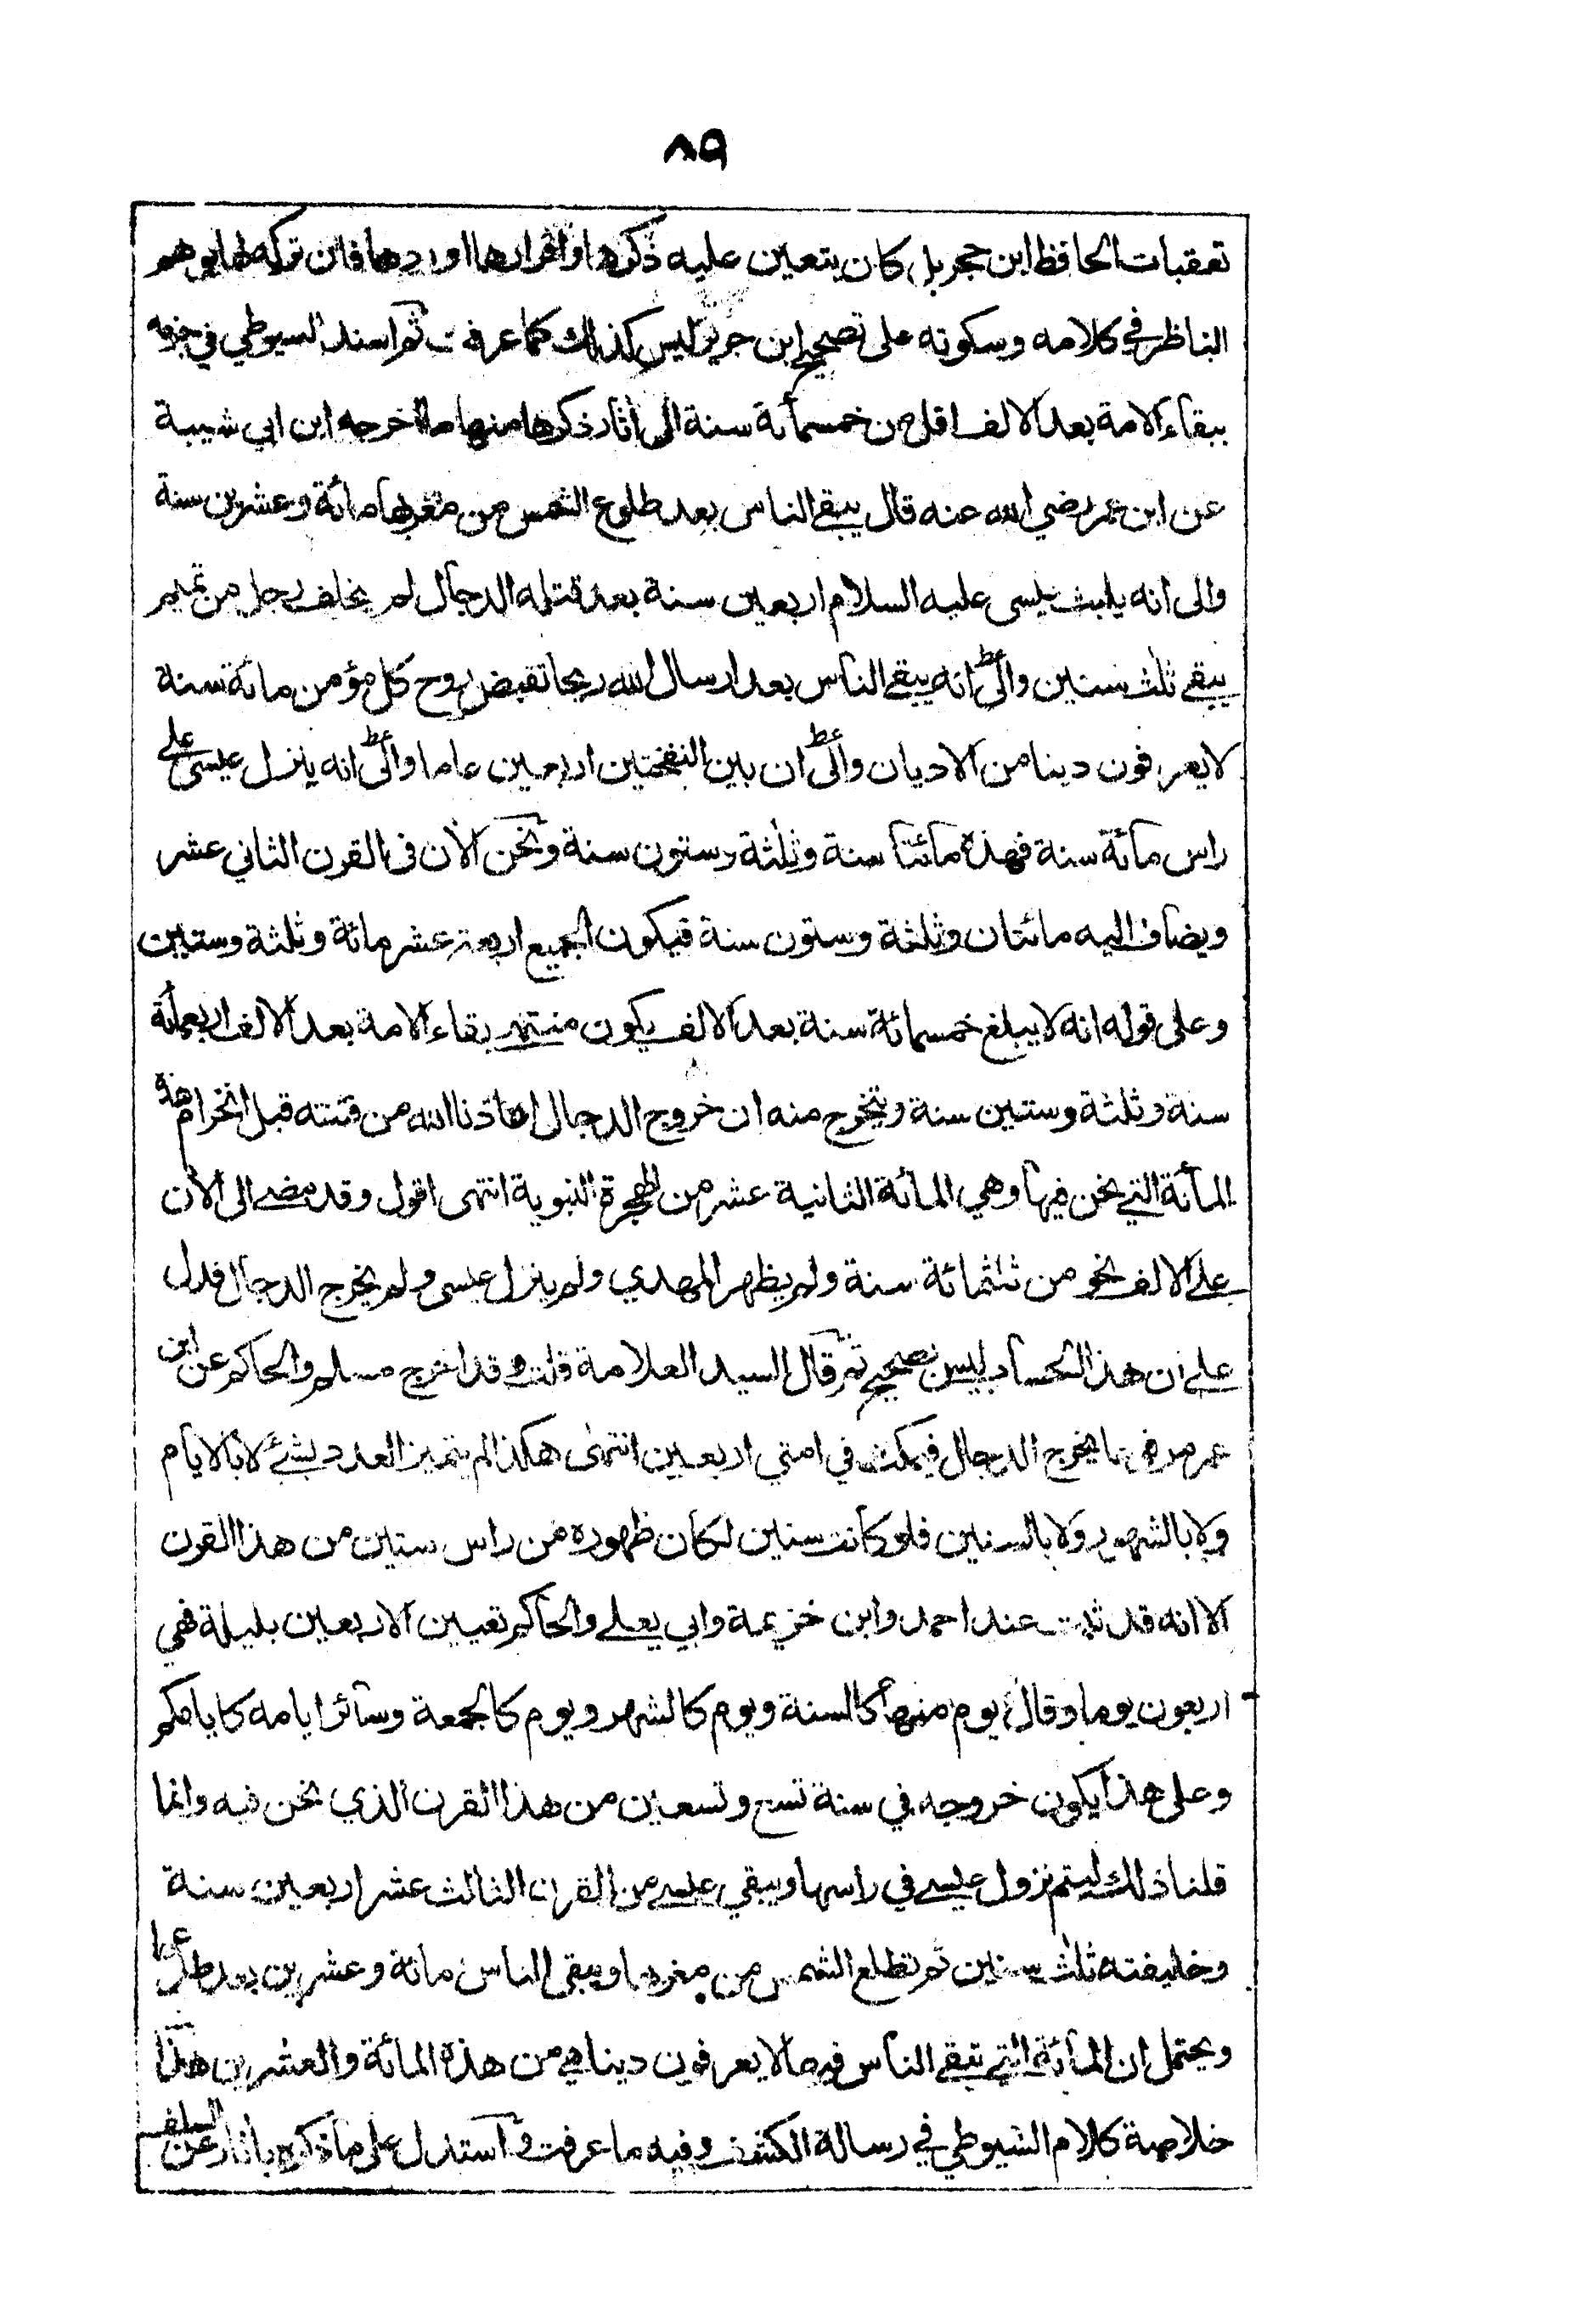 ٨٩
تعقبات الحافظ ابن حجر بل كان يتعين عليه ذكرها واقرارها او ردها فان تركه لها يوهم
الناظر في كلامه وسكوته على تصحيح ابن جرير ليس كذلك كما عرفت ثم اسند السيوطي في جزمه
ببقاء الامة بعد الالف اقل من خمسمائة سنة الى اثار ذكرها منها ما اخرجه ابن ابي شيبة
عن ابن عمر رضي الله عنه قال يبقى الناس بعد طلوع الشمس من مغربها مائة وعشرين سنة
والى انه يلبث عيسى عليه السلام اربعين سنة بعد قتله الدجال لم يخلف رجل من تميم
يبقى ثلث سنين والى انه يبقى الناس بعد ارسال الله ريحا تقبض روح كل مؤمن مائة سنة
لا يعرفون دينا من الاديان والى ان بين النفختين اربعين عاما والى انه ينزل عيسى على
راس مائة سنة فهذه مائتا سنة وثلثة وستون سنة ونحن الآن في القرن الثاني عشر
ويضاف اليه مائتان وثلثة وستون سنة فيكون الجميع اربعة عشر مائة وثلثة وستين
وعلى قوله انه لا يبلغ خمسمائة سنة بعد الالف يكون منتهى بقاء الامة بعد الالف اربعمائة
سنة وثلثة وستين سنة ويتخرج منه ان خروج الدجال اعاذنا الله من فتنته قبل انخرام هذه
المائة التي نحن فيها وهي المائة الثانية عشر من الهجرة النبوية انتهى اقول وقد مضى الى الآن
على الالف نحو من ثلثمائة سنة ولم يظهر المهدي ولم ينزل عيسى ولم يخرج الدجال فدل
على ان هذا الحساب ليس بصحيح ثم قال السيد العلامة قلت وقد اخرج مسلم والحاكم عن ابن
عمر مرفوعا يخرج الدجال فيمكث في امتي اربعين انتهى هكذا لم يتميز العدد بشئ لا بالايام
ولا بالشهور ولا بالسنين فلو كانت سنين لكان ظهوره من راس ستين من هذا القرن
الا انه قد ثبت عند احمد وابن خزيمة وابي يعلى والحاكم تعيين الاربعين بليلة فهي
اربعون يوما وقال يوم منها كالسنة ويوم كالشهر ويوم كالجمعة وسائر ايامه كايامكم
وعلى هذا يكون خروجه في سنة تسع وتسعين من هذا القرن الذي نحن فيه وانما
قلنا ذلك ليتم نزول عيسى في راسها ويبقى عيسى من القرن الثالث عشر اربعين سنة
وخليفته ثلث سنين ثم تطلع الشمس من مغربها ويبقى الناس مائة وعشرين بعد طلوعها
ويحتمل ان المائة التي تبقى الناس فيها لا يعرفون دينا هي من هذه المائة والعشرين هذا
خلاصة كلام السيوطي في رسالة الكشف وفيه ما عرفت واستدل على ما ذكره باثار عن السلف